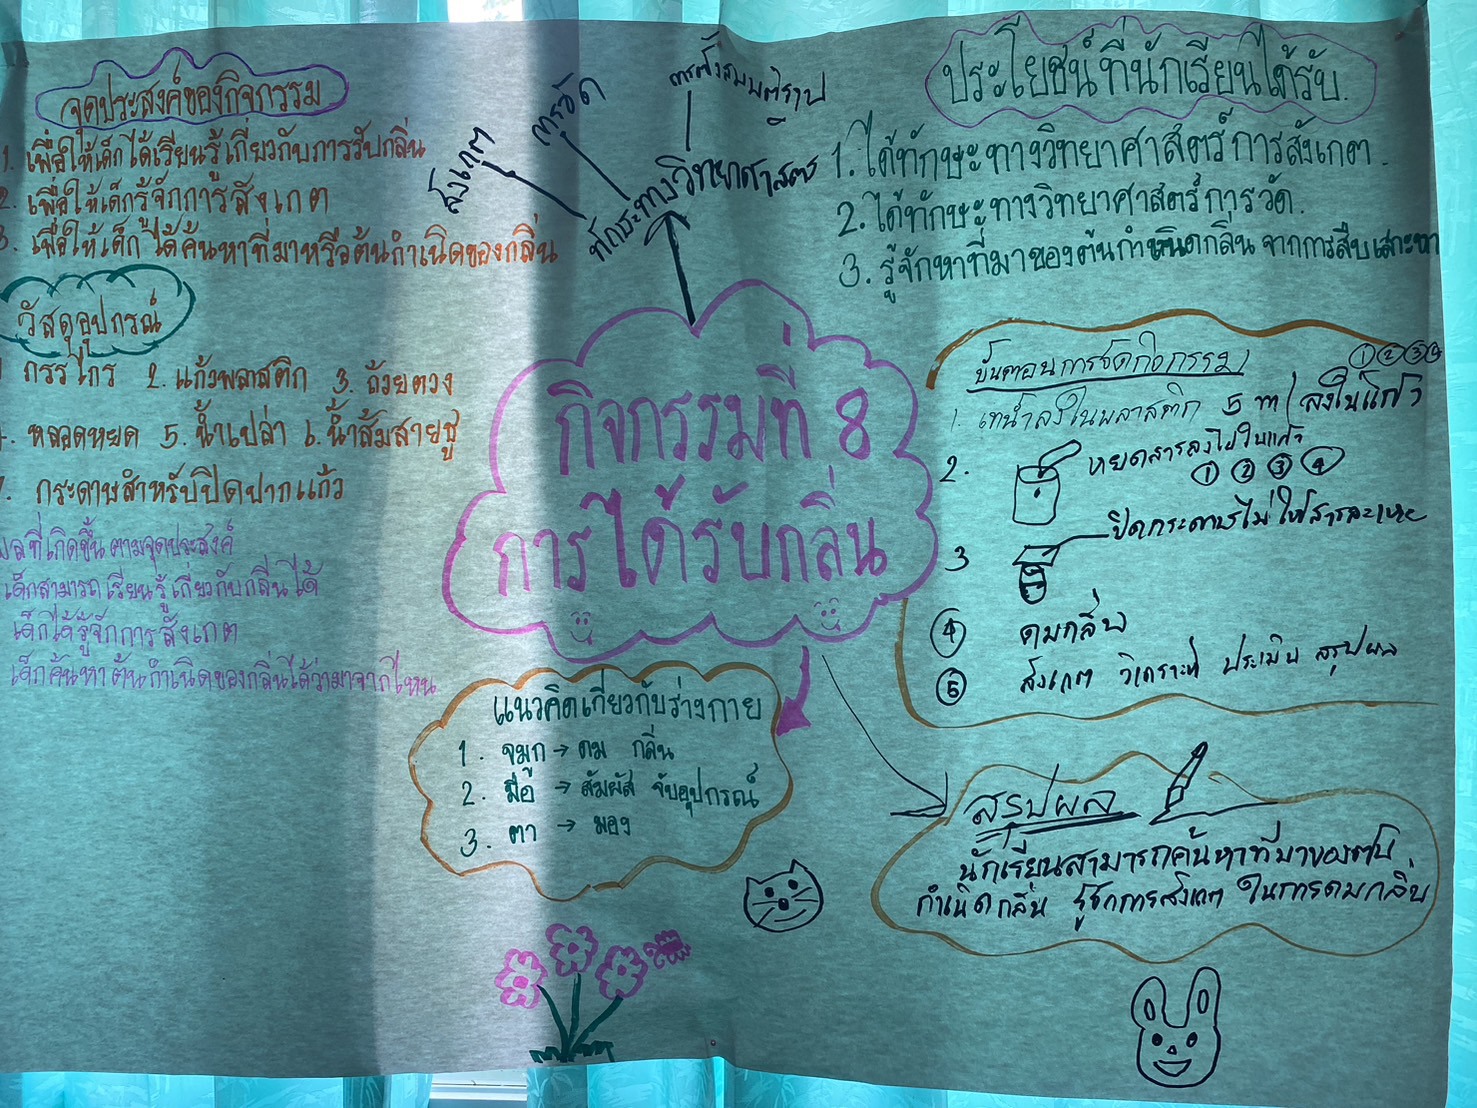 จุดประสงค์ของกิจกรรม
1. เพื่อให้เด็กได้เรียนรู้เกี่ยวกับการรับกลิ่น
2. เพื่อให้เด็กรู้จักการสังเกต
3. เพื่อให้เด็กได้ค้นหาที่มาหรือต้นกำเนิดของกลิ่น
วัสดุอุปกรณ์
กรรไกร 2. แก้วพลาสติก 3. ถ้วยตวง
หลอดหยด 5. น้ำเปล่า 6. น้ำส้มสายชู
กระดาษสำหรับปิดปากแก้ว
ผลที่เกิดขึ้นตามจุดประสงค์
เด็กสามารถเรียนรู้เกี่ยวกับกลิ่นได้
เด็กได้รู้จักการสังเกต
เด็กค้นหาต้นกำเนิดของกลิ่นได้ว่ามาจากไหน
สังเกต
การวัด
การตั้งสมมติฐาน
ทักษะทางวิทยาศาสตร์
กิจกรรมที่ 8
การได้รับกลิ่น
แนวคิดเกี่ยวกับร่างกาย
1. จมูก → ดม กลิ่น
2. มือ → สัมผัส จับอุปกรณ์
3. ตา → มอง
ประโยชน์ที่นักเรียนได้รับ.
1. ได้ทักษะทางวิทยาศาสตร์การสังเกต.
2. ได้ทักษะทางวิทยาศาสตร์การวัด.
3. รู้จักหาที่มาของต้นกำเนิดกลิ่น จากการสืบเสาะหา
ขั้นตอนการจัดกิจกรรม
1 2 3 4
1. เทน้ำลงในพลาสติก 5 ml ลงในแก้ว
2. หยดสารลงไปในแก้ว
1 2 3 4
3 ปิดกระดาษไม่ให้สารละเหย
4 ดมกลิ่น
5 สังเกต วิเคราะห์ ประเมิน สรุปผล
สรุปผล
นักเรียนสามารถค้นหาที่มาของต้น
กำเนิดกลิ่น รู้จักการสังเกต ในการดมกลิ่น